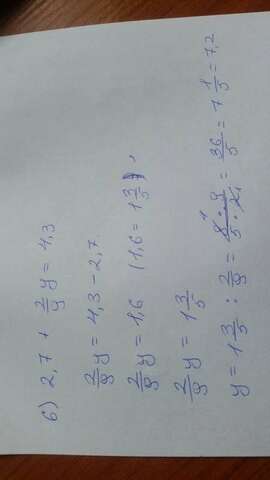 6) 2,7 + 2/9 y = 4,3
2/9 y = 4,3 - 2,7
2/9 y = 1,6 (1,6 = 1 3/5),
2/9 y = 1 3/5
y = 1 3/5 : 2/9 = 8 · 9 / 5 · 2 = 36/5 = 7 1/5 = 7,2